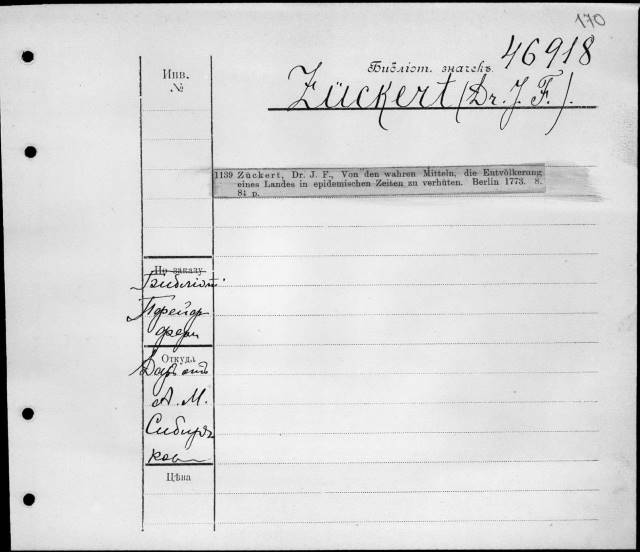 170
46918
Инв.
№
Библіот. значекъ
Zückert (Dr. J. F.).
1139 Zückert, Dr. J. F., Von den wahren Mitteln, die Entvölkerung
eines Landes in epidemischen Zeiten zu verhüten. Berlin 1773. 8.
84 p.
Пр. заказу
Библіот.
Пфейф-
фера
Откуда
Даръ отъ
А. М.
Сибиря-
кова
Цѣна